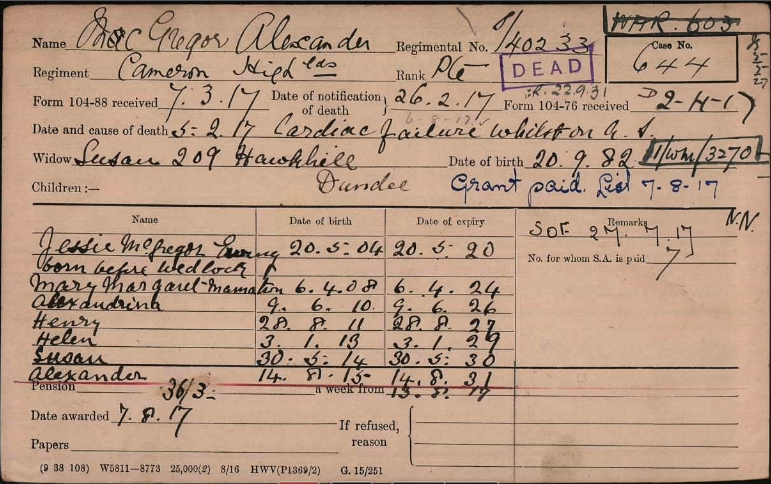 WAR. 603
Name MacGregor Alexander Regimental No. S/40233 Case No. 644
Regiment Cameron Highlds Rank Pte DEAD
R. 22.9.31
Form 104-88 received 7.3.17 Date of notification of death } 26.2.17 Form 104-76 received D 2-4-17
Date and cause of death 5-2.17 Cardiac failure whilst on A.S.
Widow Susan 209 Hawkhill Date of birth 20.9.82 1/WM/3270
Children:— Dundee Grant paid. List 7-8-17
Name Date of birth Date of expiry Remarks N.N.
Jessie McGregor Ewing 20.5.04 20.5.20 SOF 27.7.17
born before wedlock No. for whom S.A. is paid 7
Mary Margaret 6.4.08 6.4.24
Alexandrina 9.6.10. 9.6.26
Henry 28.8.11 28.8.27
Helen 3.1.13 3.1.29
Susan 30.5.14 30.5.30
Alexander 14.8.15- 14.8.31
Pension 36/3- a week from 13.8.17
Date awarded 7.8.17 If refused, reason
Papers
(9 38 108) W5811—8773 25,000(2) 8/16 HWV(P1369/2) G. 15/251